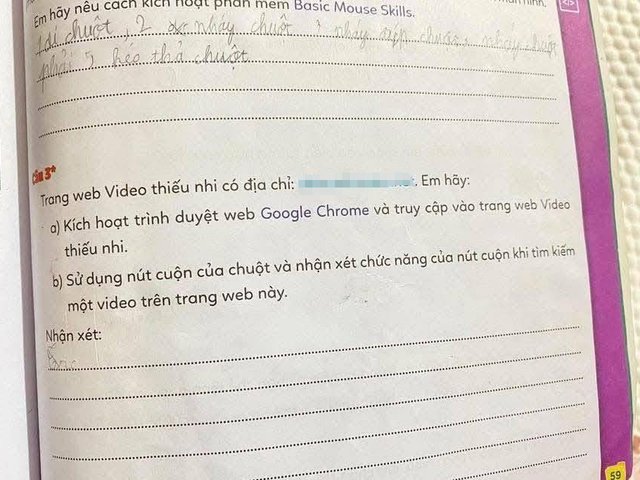 Em hãy nêu cách kích hoạt phần mềm Basic Mouse Skills.
1 di chuột, 2 nháy chuột nháy chuột
phải 5 kéo thả chuột
Câu 3*
Trang web Video thiếu nhi có địa chỉ: . Em hãy:
a) Kích hoạt trình duyệt web Google Chrome và truy cập vào trang web Video
thiếu nhi.
b) Sử dụng nút cuộn của chuột và nhận xét chức năng của nút cuộn khi tìm kiếm
một video trên trang web này.
Nhận xét:
59